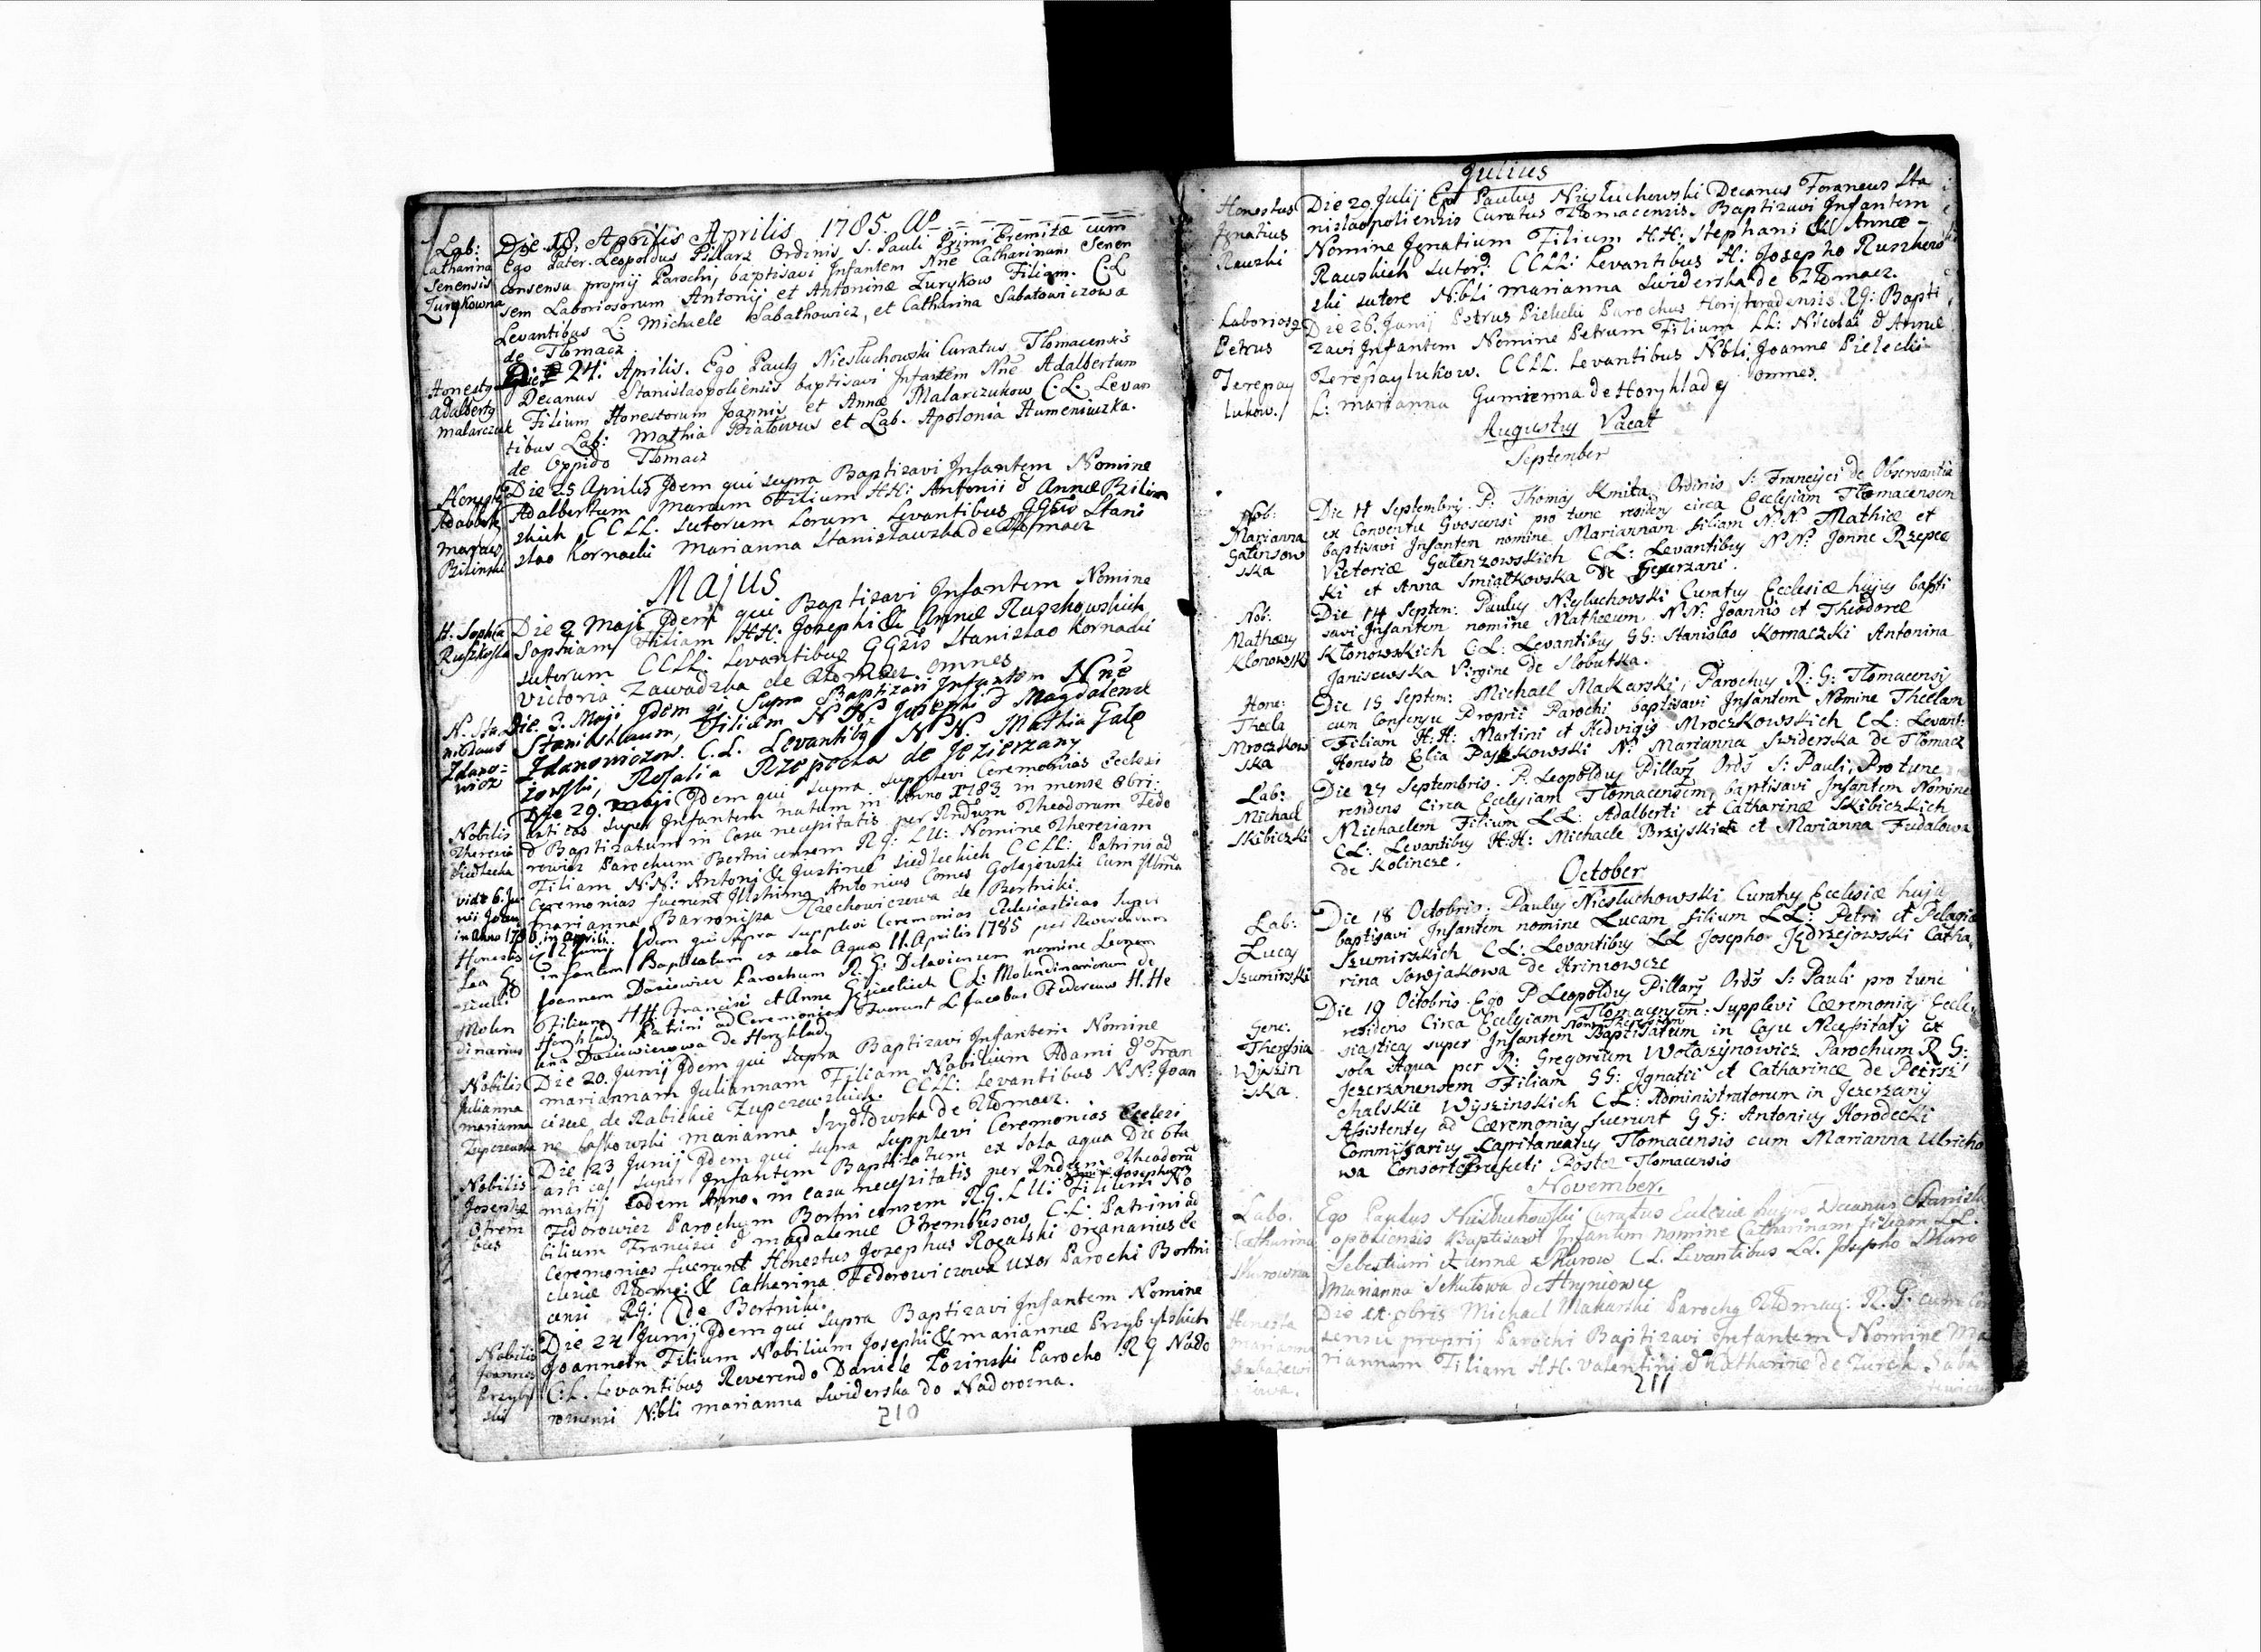 Die 18. Aprilis Aprilis 1785. Ao
Lab:
Catharina
Senensis
Zurykowna
Ego Pater Leopoldus Pillarz Ordinis S. Pauli Primi Eremitæ cum
consensu proprij Parochi baptisavi Infantem Nne Catharinam Senen
sem Laboriosorum Antonij et Antoninæ Zurykow Filiam. C.L
Levantibus L: Michaele Sabathowicz, et Catharina Sabatowiczowa
de Tłomacz.
Honesty
Adalberty
Malarczuk
24. Aprilis. Ego Pauly Niesłuchowski Curatus Tłomacensis
Decanus Stanislaopoliensis baptisavi Infantem Nne Adalbertum
Filium Honestorum Joannis et Annæ Malarczukow C.L. Levan
tibus Lab: Mathia Białowus et Lab. Apolonia Humeniuczka.
de Oppido Tłomacz
Adalberty
Marcus
Bilinski
Die 25 Aprilis Jdem qui supra Baptizavi Infantem Nomine
Adalbertum Marcum Filium HH: Antonii & Annæ Bilin
skich CCLL. sutorum Lorum Levantibus GGsis Stani
slao Kornacki Marianna Stanisławska de Tłomacz
Majus
H: Sophia
Ruszkoska
Die 2 Maji Jdem qui Baptizavi Infantem Nomine
Sophiam Filiam HH: Josephi & Annæ Ruszkowskich
sutorum CCLL: Levantibus GGsis Stanislao Kornacki
Victoria Zawadzka de Tłomacz omnes
N. Sta
nislaus
Zdano=
wicz
Die 3. Maji Jdem qi Supra Baptizavi Infantem Nne
Stanislaum, Filium NN. Josephi & Magdalenæ
Zdanowiczow. C.L. Levantiby N.N. Mathia Gałę
zowski, Rosalia Rzepecka de Jezierzany
Nobilis
Theresia
Siedlecka
Die 29. Maji Jdem qui supra supplevi Ceremonias Ecclesi
asticas super Infantem natum in Anno 1783 in mense 8bri:
& Baptizatum in Casu necessitatis per Rndum Theodorum Fedo
rowicz Parochum Bortnicensem RG: LU: Nomine Theresiam
Filiam N:N: Antonj & Justinæ Siedleckich CCLL: Patrini ad
Ceremonias fuerunt Illstrimg Antonius Comes Golejewski Cum Illma
Marianna Baronissa Czechowiczowa de Bortniki.
Jdem qui supra supplevi Ceremonias Ecclesiasticas super
infantem Baptizatum ex sola Aqua 11. Aprilis 1785 per Reverendum
Joannem Parochum R. G: nomine Leonem
Filium HH. Francisci et Annæ C.L: Molendinariorum de
Horyhlady Patrini ad Ceremonias Fuerunt L Jacobus H. He
de Horyhlady
Molen
dinarius
Nobilis
Julianna
Marianna
Zupczewska
Die 20. Junij Jdem qui supra Baptizavi Infantem Nomine
Mariannam Juliannam Filiam Nobilium Adami & Fran
ciscæ de Rabickie Zupczewskich. CCLL: Levantibus N:N: Joan
ne Łaskowski Marianna Szydłowska de Tłomacz.
Nobilis
Josephg
Otrem
bus
Die 23 Junij Jdem qui supra supplevi Ceremonias Ecclesi
asticas super Infantem Baptizatum ex sola aqua Die 6ta
Martij eodem Anno. in casu necessitatis per Rndum Theodorum
Fedorowicz Parochum Bortnicensem R.G.LU: Filium No
bilium Francisci & Magdalenæ Otrembusow C.L: Patrini ad
Ceremonias fuerunt Honestus Josephus Rogalski organarius Ec
clesiæ Tłomc: & Catharina Fedorowiczowa uxor Parochi Bortni
censi RG: de Bortniki.
Nobilis
Joannes
Przyby
ski
Die 24 Junij Jdem qui supra Baptizavi Infantem Nomine
Joannem Filium Nobilium Josephi & Mariannæ Przybylskich
C:L. Levantibus Reverendo Daniele Łozinski Parocho RG Nado
Nobli Marianna Swiderska do Nadorozna.
210
Julius
Honestus
Ignatius
Rauski
Die 20. Julij Ego Paulus Niesłuchowski Decanus Foraneus Sta
nislaopoliensis Curatus Tłomacensis. Baptizavi Infantem
Nomine Ignatium Filium H.H: Stephani & Annæ -
Rauskich sutor: CCLL: Levantibus H: Josepho Ruszkow
ski sutore Nobli Marianna Swiderska de Tłomacz.
Laboriosg
Petrus
Terepay
lukow.
Die 26. Junij Petrus Pielecki Parochus RG: Bapti
zavi Infantem Nomine Petrum Filium LL: Nicolai & Annæ
Terepaylukow. CCLL. Levantibus Nbli: Joanne Pielecki
L: Marianna Gumienna de Horyhlady omnes.
Augusty Vacat
September
Nob:
Marianna
Galensow
ska
Die 11 Septembris P. Thomas Kmita Ordinis S: Francisci de Observantia
ex Conventu Gvosdensi pro tunc residens circa Ecclesiam Tłomacensem
baptisavi Infantem nomine Mariannam filiam N:N: Mathiæ et
Victoriæ Galenzowskich C:L: Levantiby N:N: Jonne Rzepec
ki et Anna Smiatkowska De Jezerzani.
Nob:
Matheus
Klonowski
Die 14 Septem: Pauly Niesluchovski Curaty Ecclesiæ hujus bapti
savi Infantem nomine Matheum N:N: Joannis et Theodoræ
Kłonowskich C:L: Levantiby GG: Stanislao Kornaczki Antonina
Janiszewska Virgine De Slobutka.
Hone:
Thecla
Mroczkow
ska
Die 15 Septem: Michael Makarski, Parochus R: G: Tłomacensis
cum Consensu Proprii Parochi baptisavi Infantem Nomine Theclam
Filiam H:H: Martini et Hedvigis Mroczkowskich C:L: Levant:
Honesto Elia Paszkowski N: Marianna Swiderska de Tłomacz
Lab:
Michael
Skibiczki
Die 27 Septembris. P. Leopoldus Pillarz Ords S: Pauli, Pro tunc
residens Circa Ecclesiam Tłomacensem, baptisavi Infantem Nomine
Michaelem Filium LL: Adalberti et Catharinæ Skibiczkich
CL: Levantiby H:H: Michaele Brzyski et Marianna Fudalowa
de Kolincze.
October
Lab:
Lucas
Szumirski
Die 18 Octobris: Pauly Niesłuchowski Curaty Ecclesiæ hujus
baptisavi Infantem nomine Lucam filium LL: Petri et Pelagiæ
Szumirskich CL: Levantiby LL Josepho Jędrzejowski Catha
rina Sowjakowa de Hriniowcze
Gene:
Theresia
Wyszin
ska.
Die 19 Octobris. Ego P Leopoldus Pillarz Ords S: Pauli pro tunc
residens Circa Ecclesiam Tłomacensem. Supplevi Cæremonias Eccle
siasticas super Infantem Baptisatum in Casu Necessitatis ex
sola Aqua per R: Gregorium Wołaszynowicz Parochum R G:
Jezerzanensem Filiam GG: Ignatii et Catharinæ de
chalskie Wyszinskich CL: Administratorum in Jezerzany
Assistentes ad Cæremonias fuerunt GG: Antonius Horodecki
Commissarius Capitaneatus Tłomacensis cum Marianna Ulricho
wa Consorte Præfecti Postæ Tłomacensis
November.
Labo.
Catharina
Skurowna
Ego Paulus Niesłuchowski Curatus Ecclesiæ hujus Decanus Stanisla
opoliensis Baptisavi Infantem nomine Catharinam filiam LL.
Sebastiani et Annæ Skurow CL. Levantibus LL. Josepho Skuro
Marianna Sekułowa de Hryniowce
Honesta
Marianna
Die 9bris Michael Makarski Parochg Tłomac: R. G: cum con
sensu proprij Parochi Baptizavi Infantem Nomine Ma
riannam Filiam H.H. Valentini & Catharinæ de Zurek
211